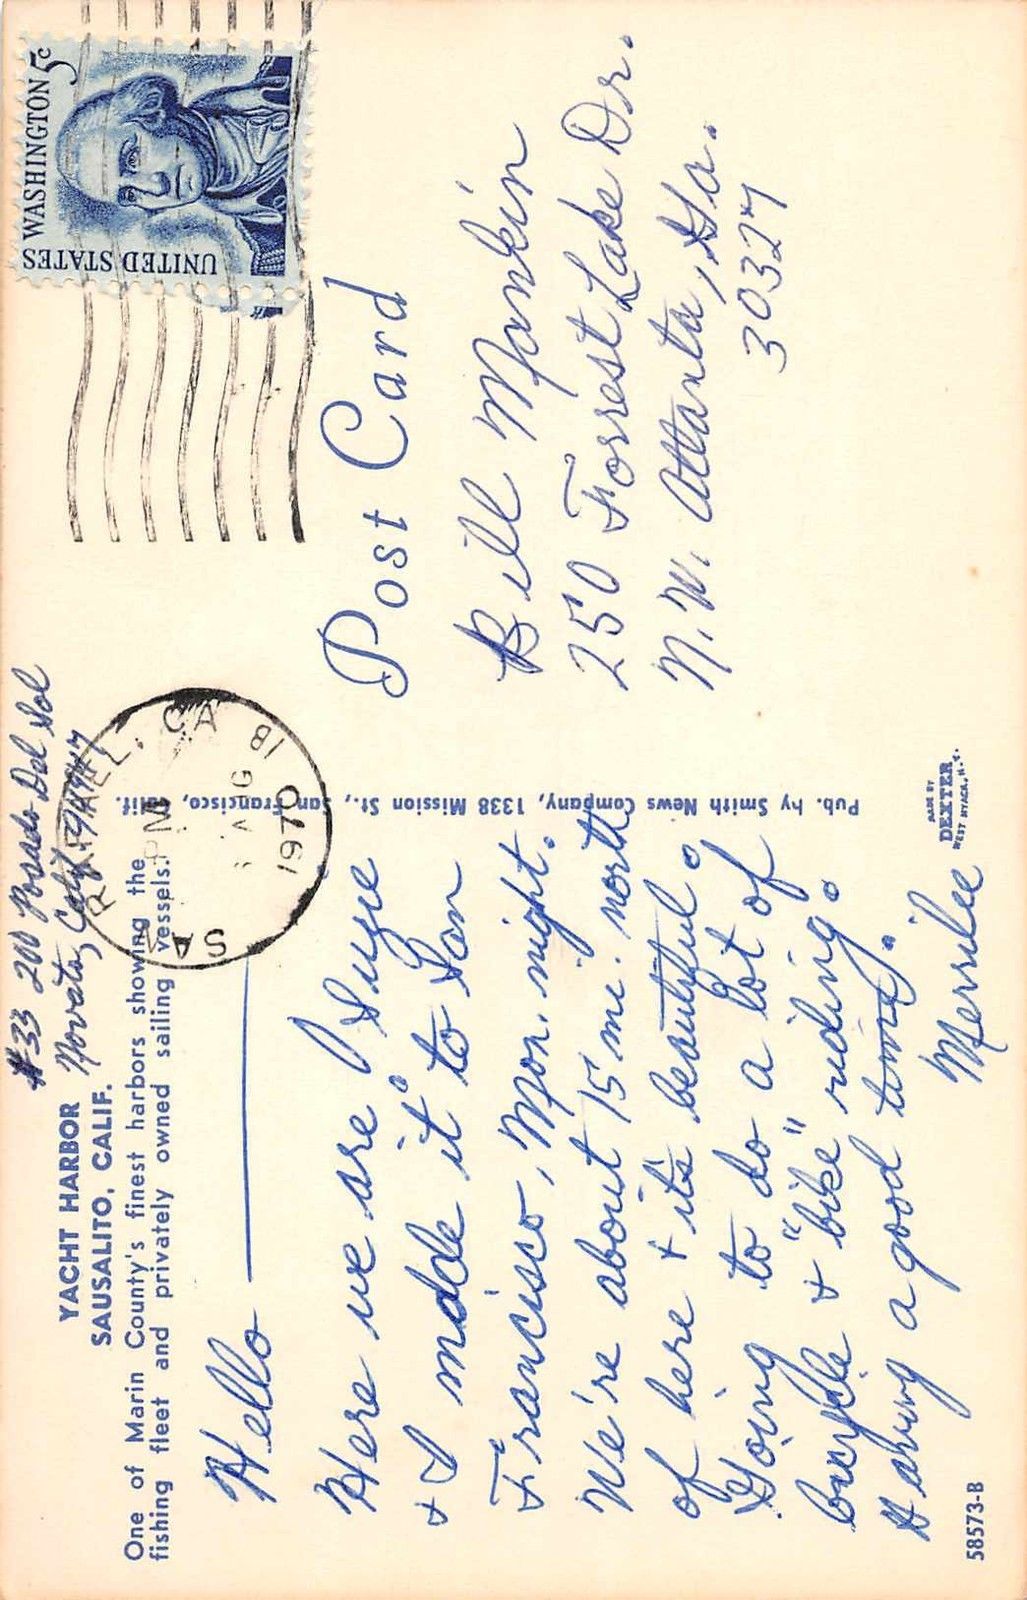 #33 200 Posada Del Sol
Novato, Calif. 94947
YACHT HARBOR
SAUSALITO, CALIF.
One of Marin County's finest harbors showing the
fishing fleet and privately owned sailing vessels.
Hello —
Here we are! Suze
& I made it to San
Francisco, Mon. night.
We're about 15 mi. north
of here & it's beautiful.
Going to do a lot of
bicycle & "bike" riding.
Having a good time.
Merrilee
58573-B
Pub. by Smith News Company, 1338 Mission St., San Francisco, Calif.
MADE BY
DEXTER
WEST NYACK, N.Y.
SAN RAFAEL, CA
PM
18 AUG
1970
UNITED STATES
WASHINGTON
5c
Post Card
Bill Mankin
250 Forrest Lake Dr.
N.W. Atlanta, Ga.
30327